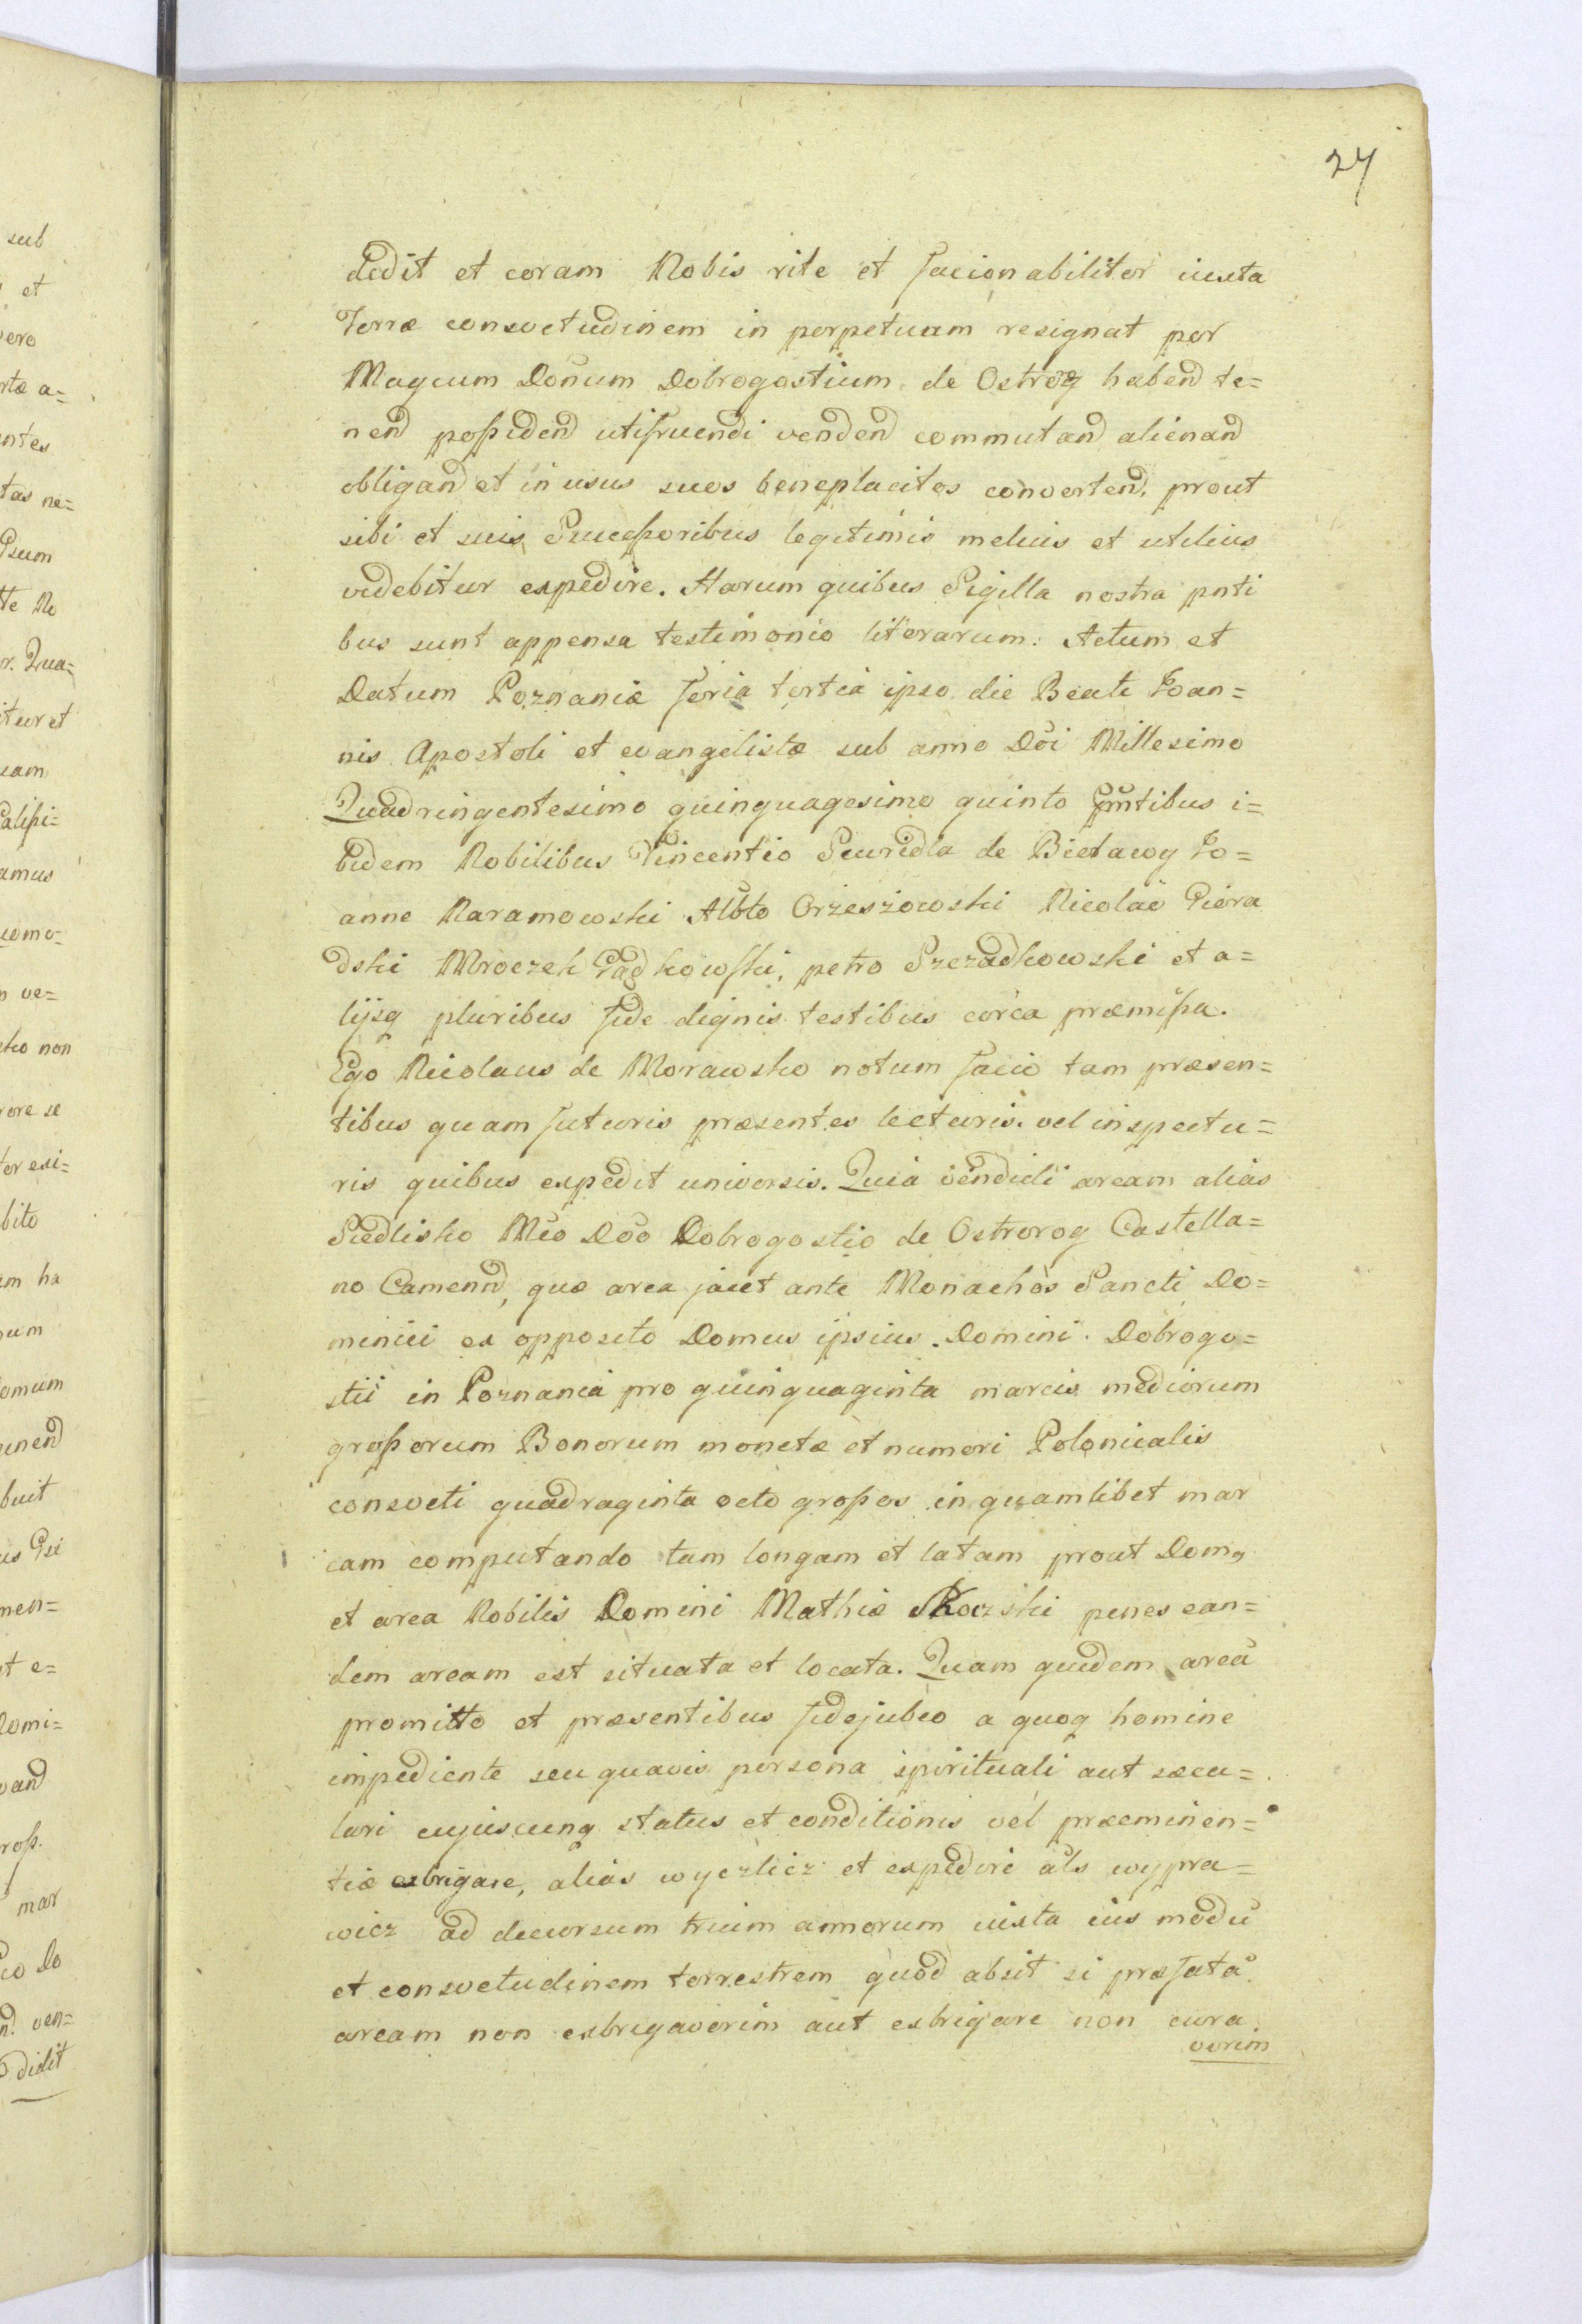 24
dedit et coram Nobis rite et facionabiliter iuxta
Terræ consvetudinem in perpetuam resignat per
Magcum Donum Dobrogostium de Ostrog habend te=
nend possidend utifruendi vendend commutand alienand
obligand et in usus suos beneplacitos convertend, prout
sibi et suis Successoribus legitimis melius et utilius
videbitur expedire. Harum quibus Sigilla nostra pnti
bus sunt appensa testimonio literarum. Actum et
Datum Poznaniæ feria tertia ipso die Beati Joan=
nis Apostoli et evangelistæ sub anno Doi Millesimo
Quadringentesimo quinquagesimo quinto pntibus i=
bidem Nobilibus Vincentio Scuredla de Bietawy Jo=
anne Naramowski Albto Orzeszowski Nicolao Giera
dski Mroczek petro Szczadkowski et a=
lijsq pluribus fide dignis testibus circa præmissa.
Ego Nicolaus de Morawsko notum facio tam præsen=
tibus quam futuris præsentes lecturis vel inspectu=
ris quibus expedit universis. Quia vendidi aream alias
Siedlisko Mco Doo Dobrogostio de Ostrorog Castella=
no Camenn, quæ area jacet ante Monachos Sancti Do=
minici ex opposito Domus ipsius Domini Dobrogo=
stii in Poznania pro quinquaginta marcis mediorum
grossorum Bonorum monetæ et numeri Polonicalis
consveti quadraginta octo grossos in quamlibet mar
cam computando tam longam et latam prout Domq
et area Nobilis Domini Mathiæ penes ean=
dem aream est situata et locata. Quam quidem areã
promitto et præsentibus fidejubeo a quoq homine
impediente seu quavis persona spirituali aut sæcu=
lari cujuscunq status et conditionis vel præeminen=
tiæ exbrigare, alias wyczlicz et expedire als wypra=
wicz ad decursum trium annorum iuxta ius modũ
et consvetudinem terrestrem quod absit si præfatã
aream non exbrigaverim aut exbrigare non cura
verim
sub
et
vero
rtæ a=
entes
tas ne=
Psum
te No
r. Qua=
itur et
uam
Calissi=
amus
uomo=
n ve=
sko non
rore se
or exi=
bito
um ha
num
omum
unend
buit
us Psi
men=
nt e=
Domi=
vand
ross.
mar
co Do
nd ven=
didit